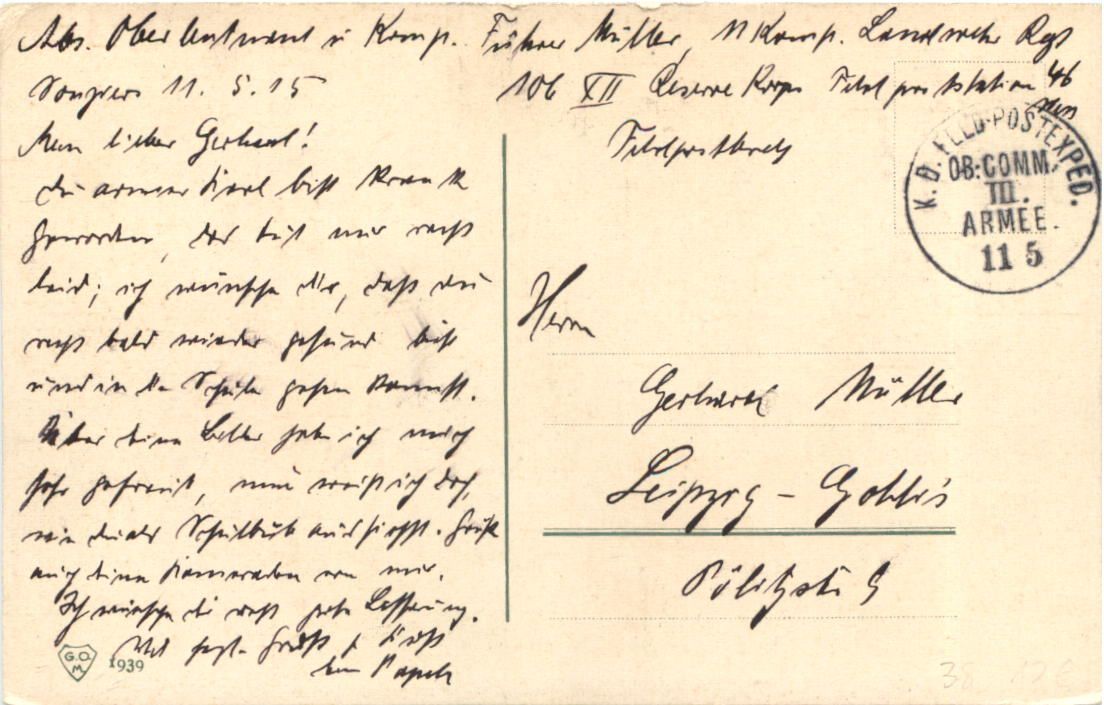 Abs. Oberleutnant u Komp. Führer Müller, 11 Komp. Landwehr Rgt
106 XII Reserve Korps Feldpoststation 46
Feldpostbrief
11. 5. 15
Mein lieber Gerhard!
Du armer Kerl bist krank
geworden, das tut mir recht
leid; ich wünsche dir, daß du
recht bald wieder gesund bist
und in die Schule gehen kannst.
Über deine Bilder habe ich mich
sehr gefreut, nun weiß ich doch,
wie du als Schulbub aussiehst. Grüße
auch deine Kameraden von mir.
Ich wünsche dir recht gute Besserung.
Mit herzl. Gruß u Kuß
dein Papa
K. D. FELD-POSTEXPED.
OB:COMM.
III.
ARMEE.
11 5
Herrn
Gerhard Müller
Leipzig - Gohlis
Pölitzstr 9
G.O.
M.
1939